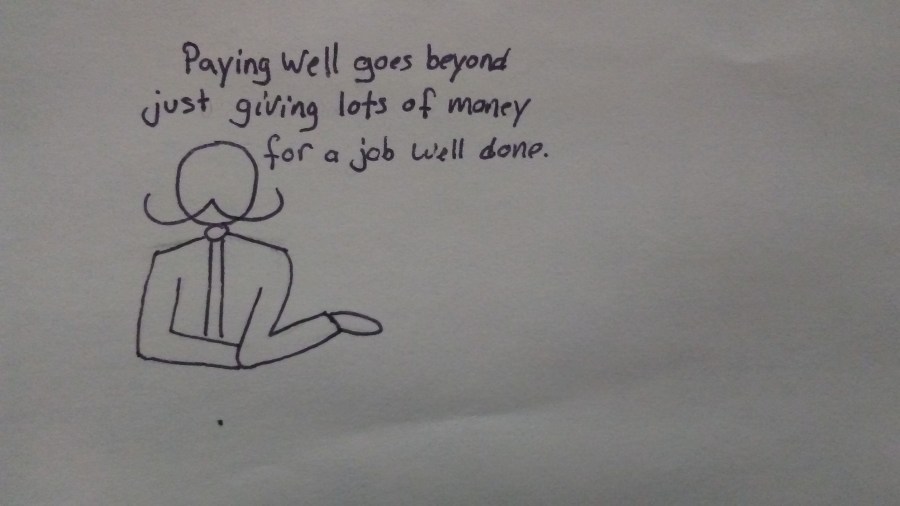 Paying Well goes beyond
just giving lots of money
for a job well done.